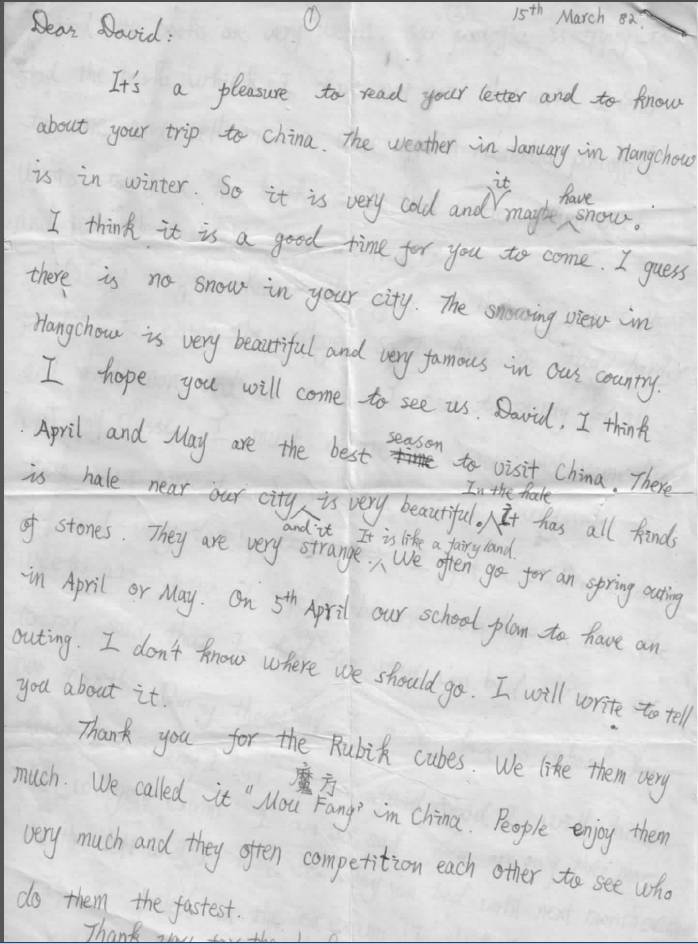 ①
15th March 82.
Dear David:
It's a pleasure to read your letter and to know
about your trip to China. The weather in January in Hangchow
is in winter. So it is very cold and it maybe have snow.
I think it is a good time for you to come. I guess
there is no snow in your city. The snowing view in
Hangchow is very beautiful and very famous in our country.
I hope you will come to see us. David, I think
April and May are the best season to visit China. There
is hale near our city and it is very beautiful. In the hale It has all kinds
of stones. They are very strange. It is like a fairyland. We often go for an spring outing
in April or May. On 5th April our school plan to have an
outing. I don't know where we should go. I will write to tell
you about it.
Thank you for the Rubik cubes. We like them very
魔方
much. We called it "Mou Fang" in China. People enjoy them
very much and they often competition each other to see who
do them the fastest.
Thank you for the